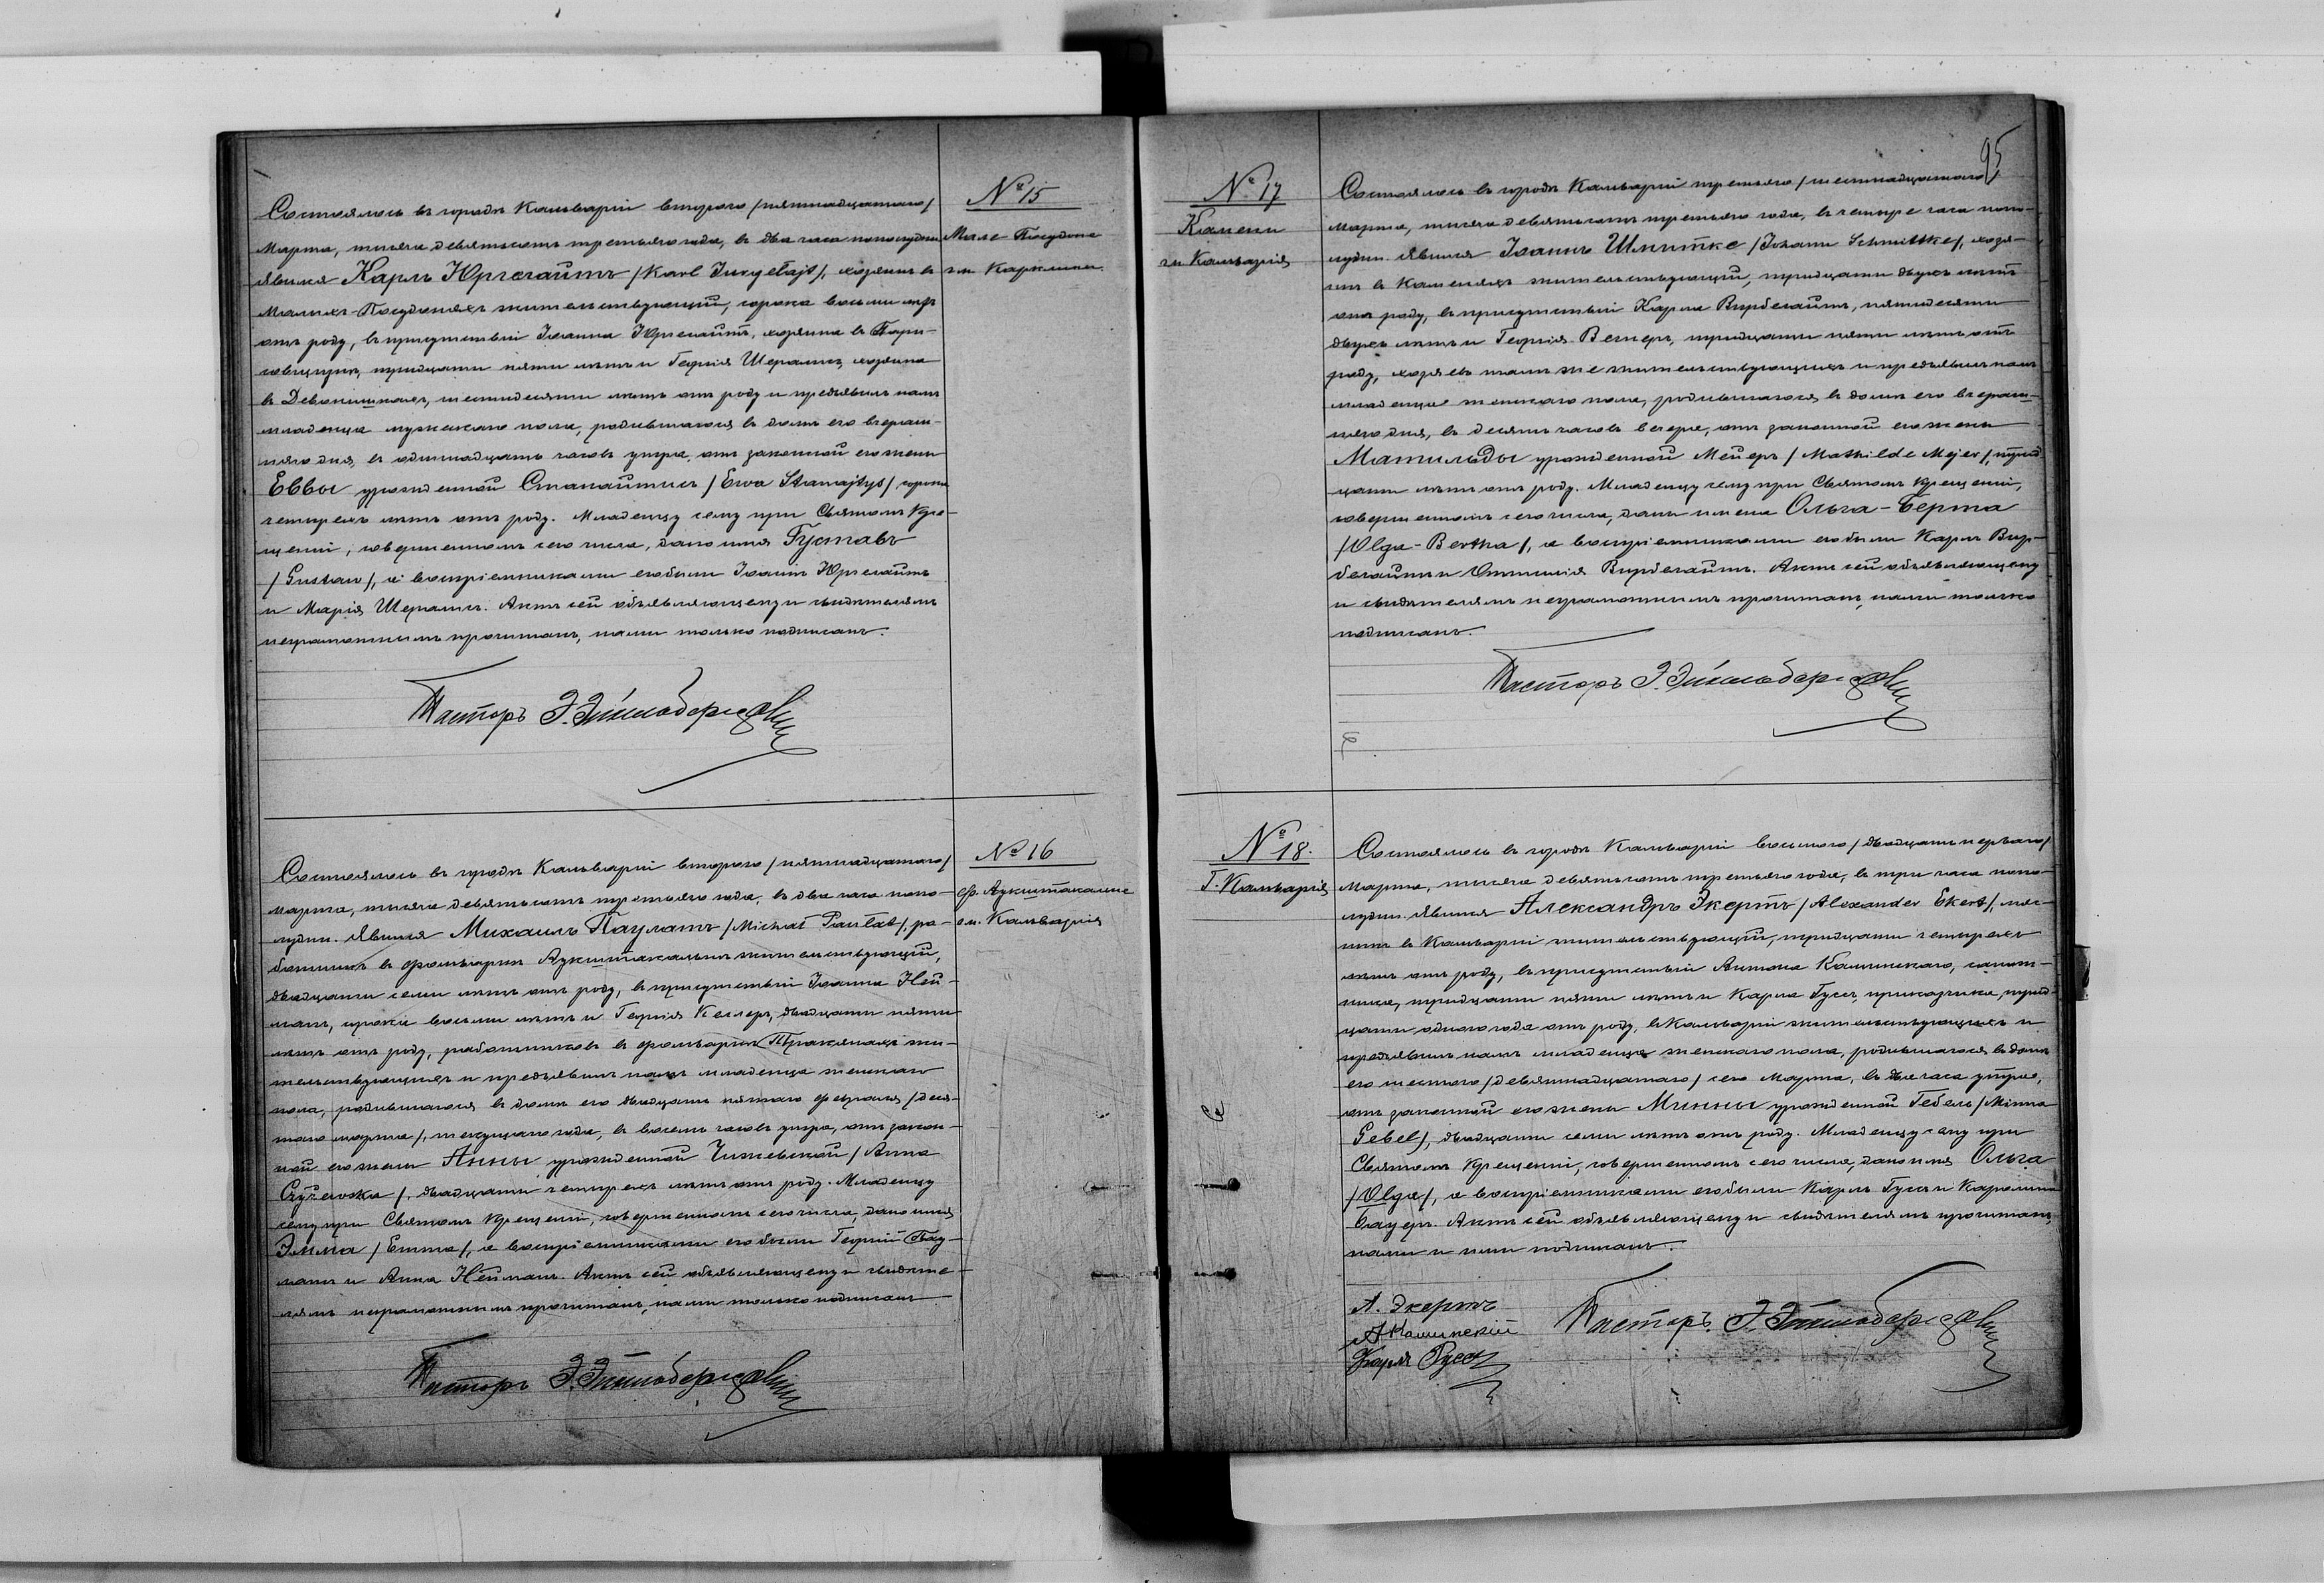 № 15
Мале Посудоне
гм. Карклины
Состоялось въ городѣ Кальваріи второго /пятнадцатаго/
Марта, тысяча девятьсотъ третьяго года, въ два часа пополудни
явился Карлъ Юргелайтъ /Karl Jurgełajt/, хозяинъ въ
Малыхъ-Посудоняхъ жительствующій, сорока восьми лѣтъ
отъ роду, въ присутствіи Іоанна Юргелайтъ, хозяина въ
тридцати пяти лѣтъ и Георгія Шералисъ, хозяина
въ шестидесяти лѣтъ отъ роду и предъявилъ намъ
младенца мужескаго пола, родившагося въ домѣ его вчераш-
няго дня, въ одиннадцать часовъ утра, отъ законной его жены
Еввы урожденной Станайтисъ /Ewa Stanajtys/ сорока
четырехъ лѣтъ отъ роду. Младенцу сему при Святомъ Кре-
щеніи, совершенномъ сего числа, дано имя Густавъ
/Gustaw/, а воспріемниками его были Іоаннъ Юргелайтъ
и Марія Шералисъ. Актъ сей объявляющему и свидѣтелямъ
неграмотнымъ прочитанъ, нами только подписанъ.
Пасторъ Э.
№ 16
ф. Аукштакальне
гм. Кальварія
Состоялось въ городѣ Кальваріи второго /пятнадцатаго/
марта, тысяча девятьсотъ третьяго года, въ два часа попо-
лудни. Явился Михаилъ Паулатъ /Michał Paułat/, ра-
ботникъ въ фольваркѣ Аукштакальнѣ жительствующій,
двадцати семи лѣтъ отъ роду, въ присутствіи Іоанна Ней-
манъ, сорока восьми лѣтъ и Георгія Келлеръ, двадцати пяти
лѣтъ отъ роду, работниковъ въ фольваркѣ Тракяняхъ жи-
тельствующихъ и предъявилъ намъ младенца женскаго
пола, родившагося въ домѣ его двадцать пятаго февраля /деся-
таго марта/, текущаго года, въ восемь часовъ утра, отъ закон-
ной его жены Анны урожденной Чижевской /Anna
Czyżewska/, двадцати четырехъ лѣтъ отъ роду. Младенцу
сему при Святомъ Крещеніи, совершенномъ сего числа, дано имя
Эмма /Emma/, а воспріемниками его были Георгій Бау-
манъ и Анна Нейманъ. Актъ сей объявляющему и свидѣте-
лямъ неграмотнымъ прочитанъ, нами только подписанъ
Пасторъ Э.
95
№ 17
Камени
гм. Кальварія
Состоялось въ городѣ Кальваріи третьяго /шестнадцатаго/
марта, тысяча девятьсотъ третьяго года, въ четыре часа попо-
лудни. Явился Іоаннъ Шмитке /Johann Schmittke/, хозя-
инъ въ Каменяхъ жительствующій, тридцати двухъ лѣтъ
отъ роду, въ присутствіи Карла Вирбелайтъ, пятидесяти
двухъ лѣтъ и Георгія Вегнеръ, тридцати пяти лѣтъ отъ
роду, хозяевъ тамъ же жительствующихъ и предъявилъ намъ
младенца женскаго пола, родившагося въ домѣ его вчераш-
няго дня, въ десять часовъ вечера, отъ законной его жены
Матильды урожденной Мейеръ /Mathilde Mejer/, трид-
цати лѣтъ отъ роду. Младенцу сему при Святомъ Крещеніи,
совершенномъ сего числа, даны имена Ольга-Берта
/Olga-Bertha/, а воспріемниками его были Карлъ Вир-
белайтъ и Оттилія Вирбелайтъ. Актъ сей объявляющему
и свидѣтелямъ неграмотнымъ прочитанъ, нами только
подписанъ.
Пасторъ Э.
№ 18.
Г. Кальварія
Состоялось въ городѣ Кальваріи восьмого /двадцать перваго/
Марта, тысяча девятьсотъ третьяго года, въ три часа попо-
лудни. Явился Александръ Экертъ /Alexander Ekert/, мяс-
никъ въ Кальваріи жительствующій, тридцати четырехъ
лѣтъ отъ роду, въ присутствіи Антона Калинскаго, сапож-
ника, тридцати пяти лѣтъ и Карла Гуссъ, приказчика, трид-
цати одного года отъ роду, въ Кальваріи жительствующихъ и
предъявилъ намъ младенца женскаго пола, родившагося въ домѣ
его шестого /девятнадцатаго/ сего Марта, въ два часа утра,
отъ законной его жены Минны урожденной Гебель /Minna
Gebel/, двадцати семи лѣтъ отъ роду. Младенцу сему при
Святомъ Крещеніи, совершенномъ сего числа, дано имя Ольга
/Olga/, а воспріемниками его были Карлъ Гуссъ и Каролина
Бауеръ. Актъ сей объявляющему и свидѣтелямъ прочитанъ,
нами и ими подписанъ.
А. Экертъ
А Калинскій
Карлъ Гуссъ
Пасторъ Э.